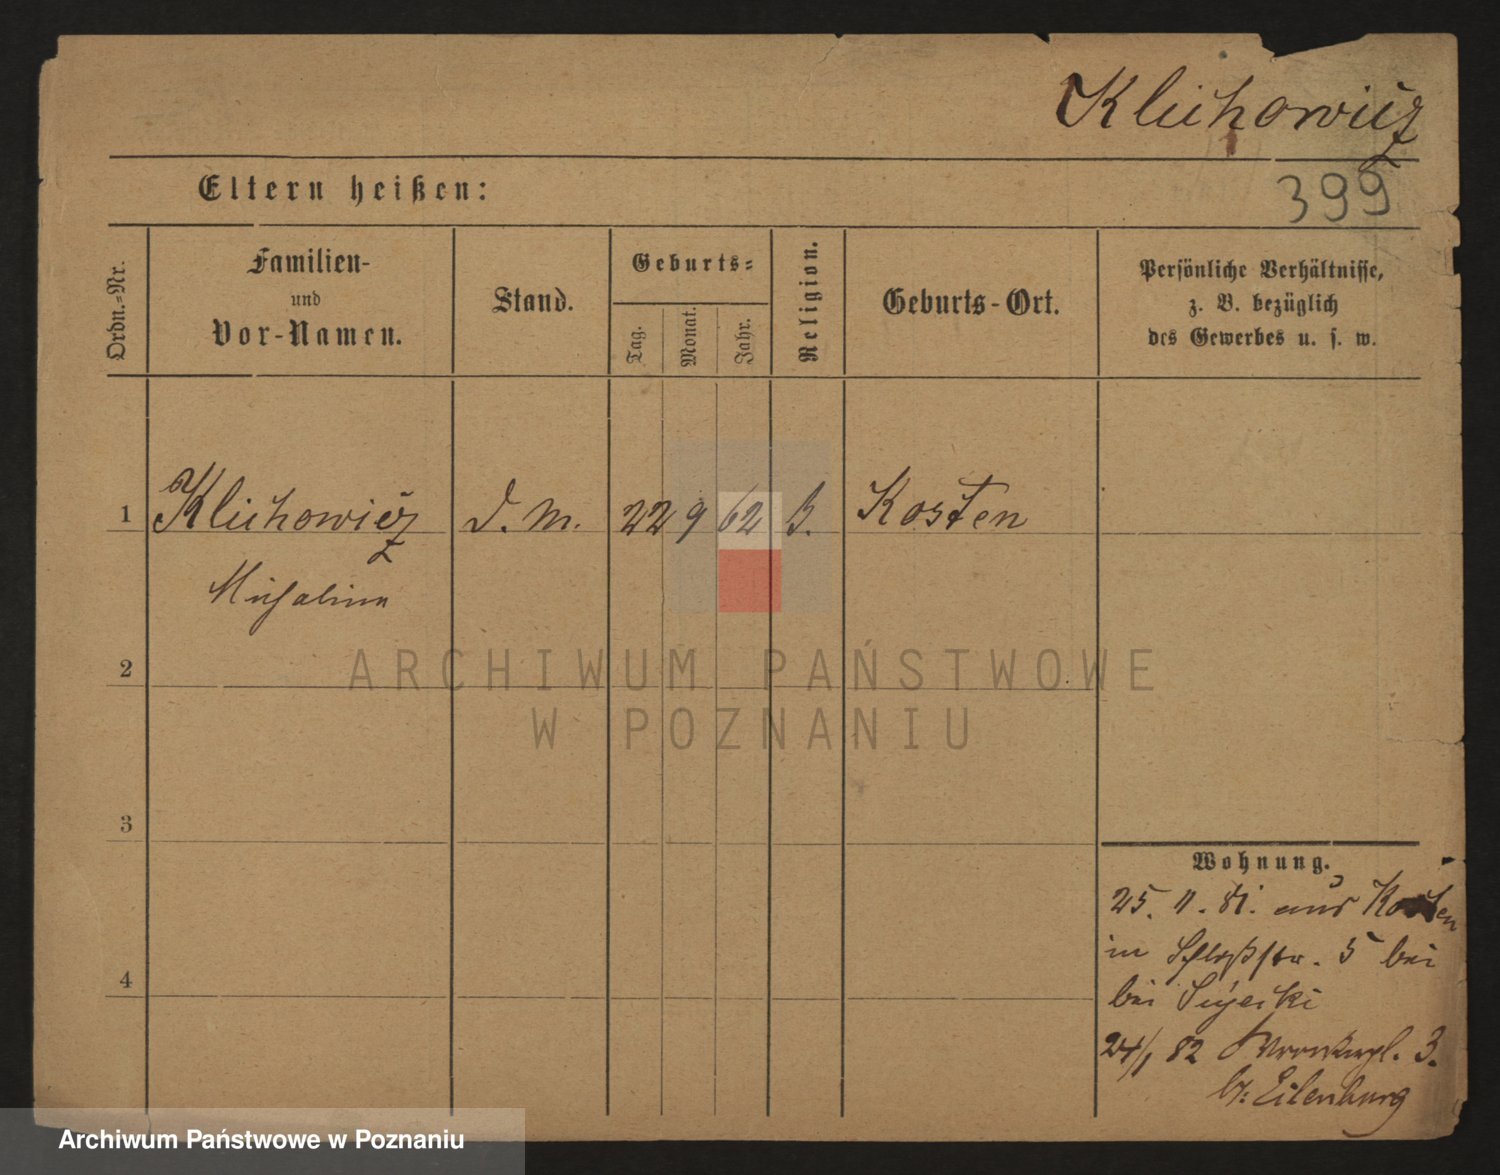 Klichowicz
399
Eltern heißen:
Ordn.-Nr.
Familien-
und
Vor-Namen.
Stand.
Geburts-
Tag.
Monat.
Jahr.
Religion.
Geburts-Ort.
Persönliche Verhältnisse,
z. B. bezüglich
des Gewerbes u. s. w.
1 Klichowicz D. M. 22 9 62 Kosten
Michalina
2
3
4
Wohnung.
25. 11. 81. aus Kosten
in Schloßstr. 5 bei
bei
24/1 82 3.
b: Eilenburg
ARCHIWUM PAŃSTWOWE
W POZNANIU
Archiwum Państwowe w Poznaniu